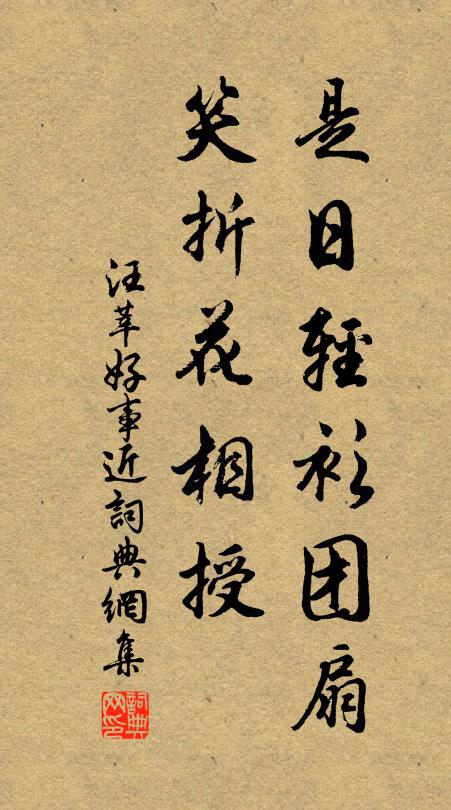 是日輕衫团扇
笑折花相授
汪莘好事近詞典網集
詞典
网印